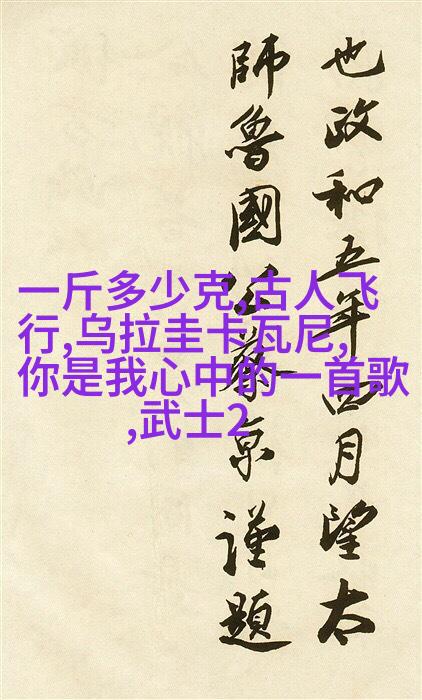 也政和五年四月望太
師魯國公蔡京謹題
一斤多少克,古人飞
行,乌拉圭卡瓦尼,
你是我心中的一首歌
,武士2